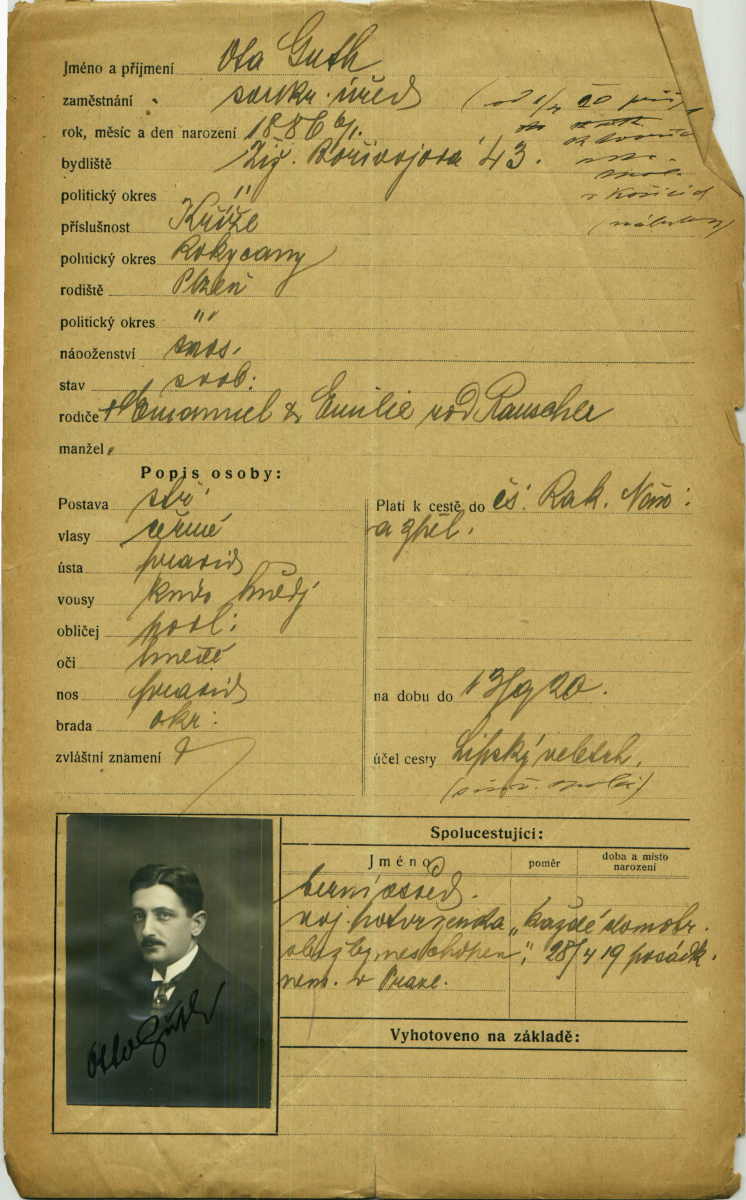 Jméno a příjmení Ota Guth
zaměstnání soukr. úřed
rok, měsíc a den narození 1886 6/1.
bydliště Žiž. Bořivojova 43.
politický okres "
příslušnost Kříše
politický okres Rokycany
rodiště Plzeň
politický okres "
náboženství
stav svob.
rodiče Emanuel & Emilie roz Rauscher
manžel
Popis osoby:
Postava stř.
vlasy černé
ústa pravid
vousy knír hnědý
obličej podl.
oči hnědé
nos pravid
brada okr:
zvláštní znamení
Platí k cestě do čs. Rak. Něm:
a zpět.
na dobu do 13/9 20.
účel cesty Lipský veletrh.
Otto Guth
Spolucestující:
Jméno
poměr
doba a místo narození
berní osvěd.
voj. potvrzenka „každé domobr.
služby neschopen", 28/4 19 posádk.
nem. v Praze.
Vyhotoveno na základě: